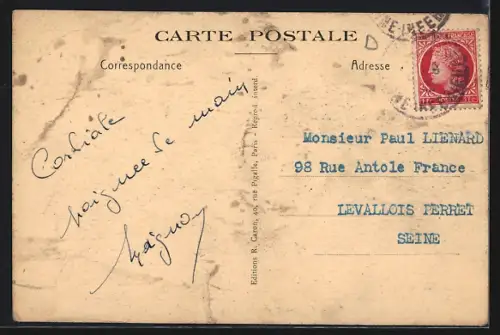 CARTE POSTALE
Correspondance
Adresse
D
Cordiale
poignée de main
Editions R. Caron, 40, rue Pigalle, Paris - Reprod. interd.
Monsieur Paul LIENARD
98 Rue Antole France
LEVALLOIS PERRET
SEINE